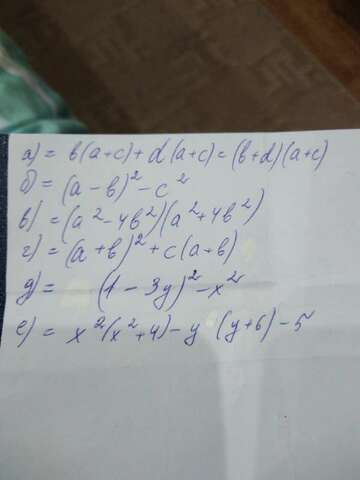 а) = b(a+c) + d(a+c) = (b+d)(a+c)
б) = (a-b)² - c²
в) = (a² - 4b²)(a² + 4b²)
г) = (a+b)² + c(a+b)
д) = (1 - 3y)² - x²
е) = x²(x²+4) - y (y+6) - 5